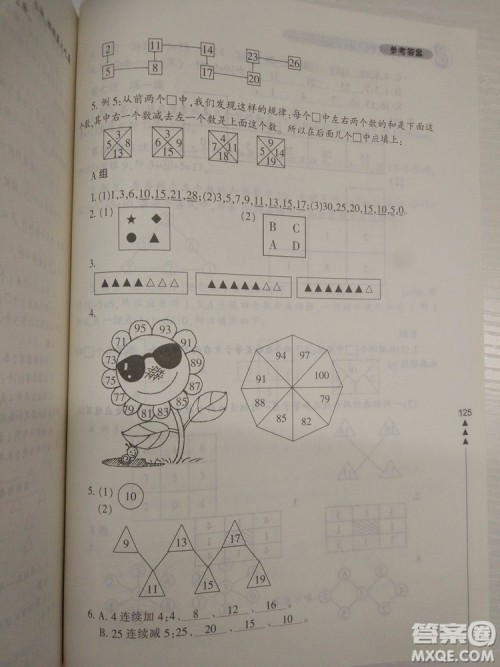 参考答案
2 11 14 23 26
5 8 17 20
5. 例5:从前两个□中,我们发现这样的规律:每个□中左右两个数的和是下面这
个数,其中右一个数减去左一个数是上面这个数。所以在后面几个□中点填上:
3 3 4 5
5 8 6 9 7 11 9 14
13 15 18 19
A组
1. (1)1,3,6,10,15,21,28;(2)3,5,7,9,11,13,15,17;(3)30,25,20,15,10,5,0
2. (1) (2)
B C
A D
3.
4.
95 93
71 91
73 89
75 87
77 85
79 81 83
94 97
91 100
88 79
85 82
125
5. (1) 10
(2)
9 13 17
11 15 19
6. A. 4连续加4:4、8、12、16。
B. 25连续减5:25、20、15、10
答案圈
MXQE.COM